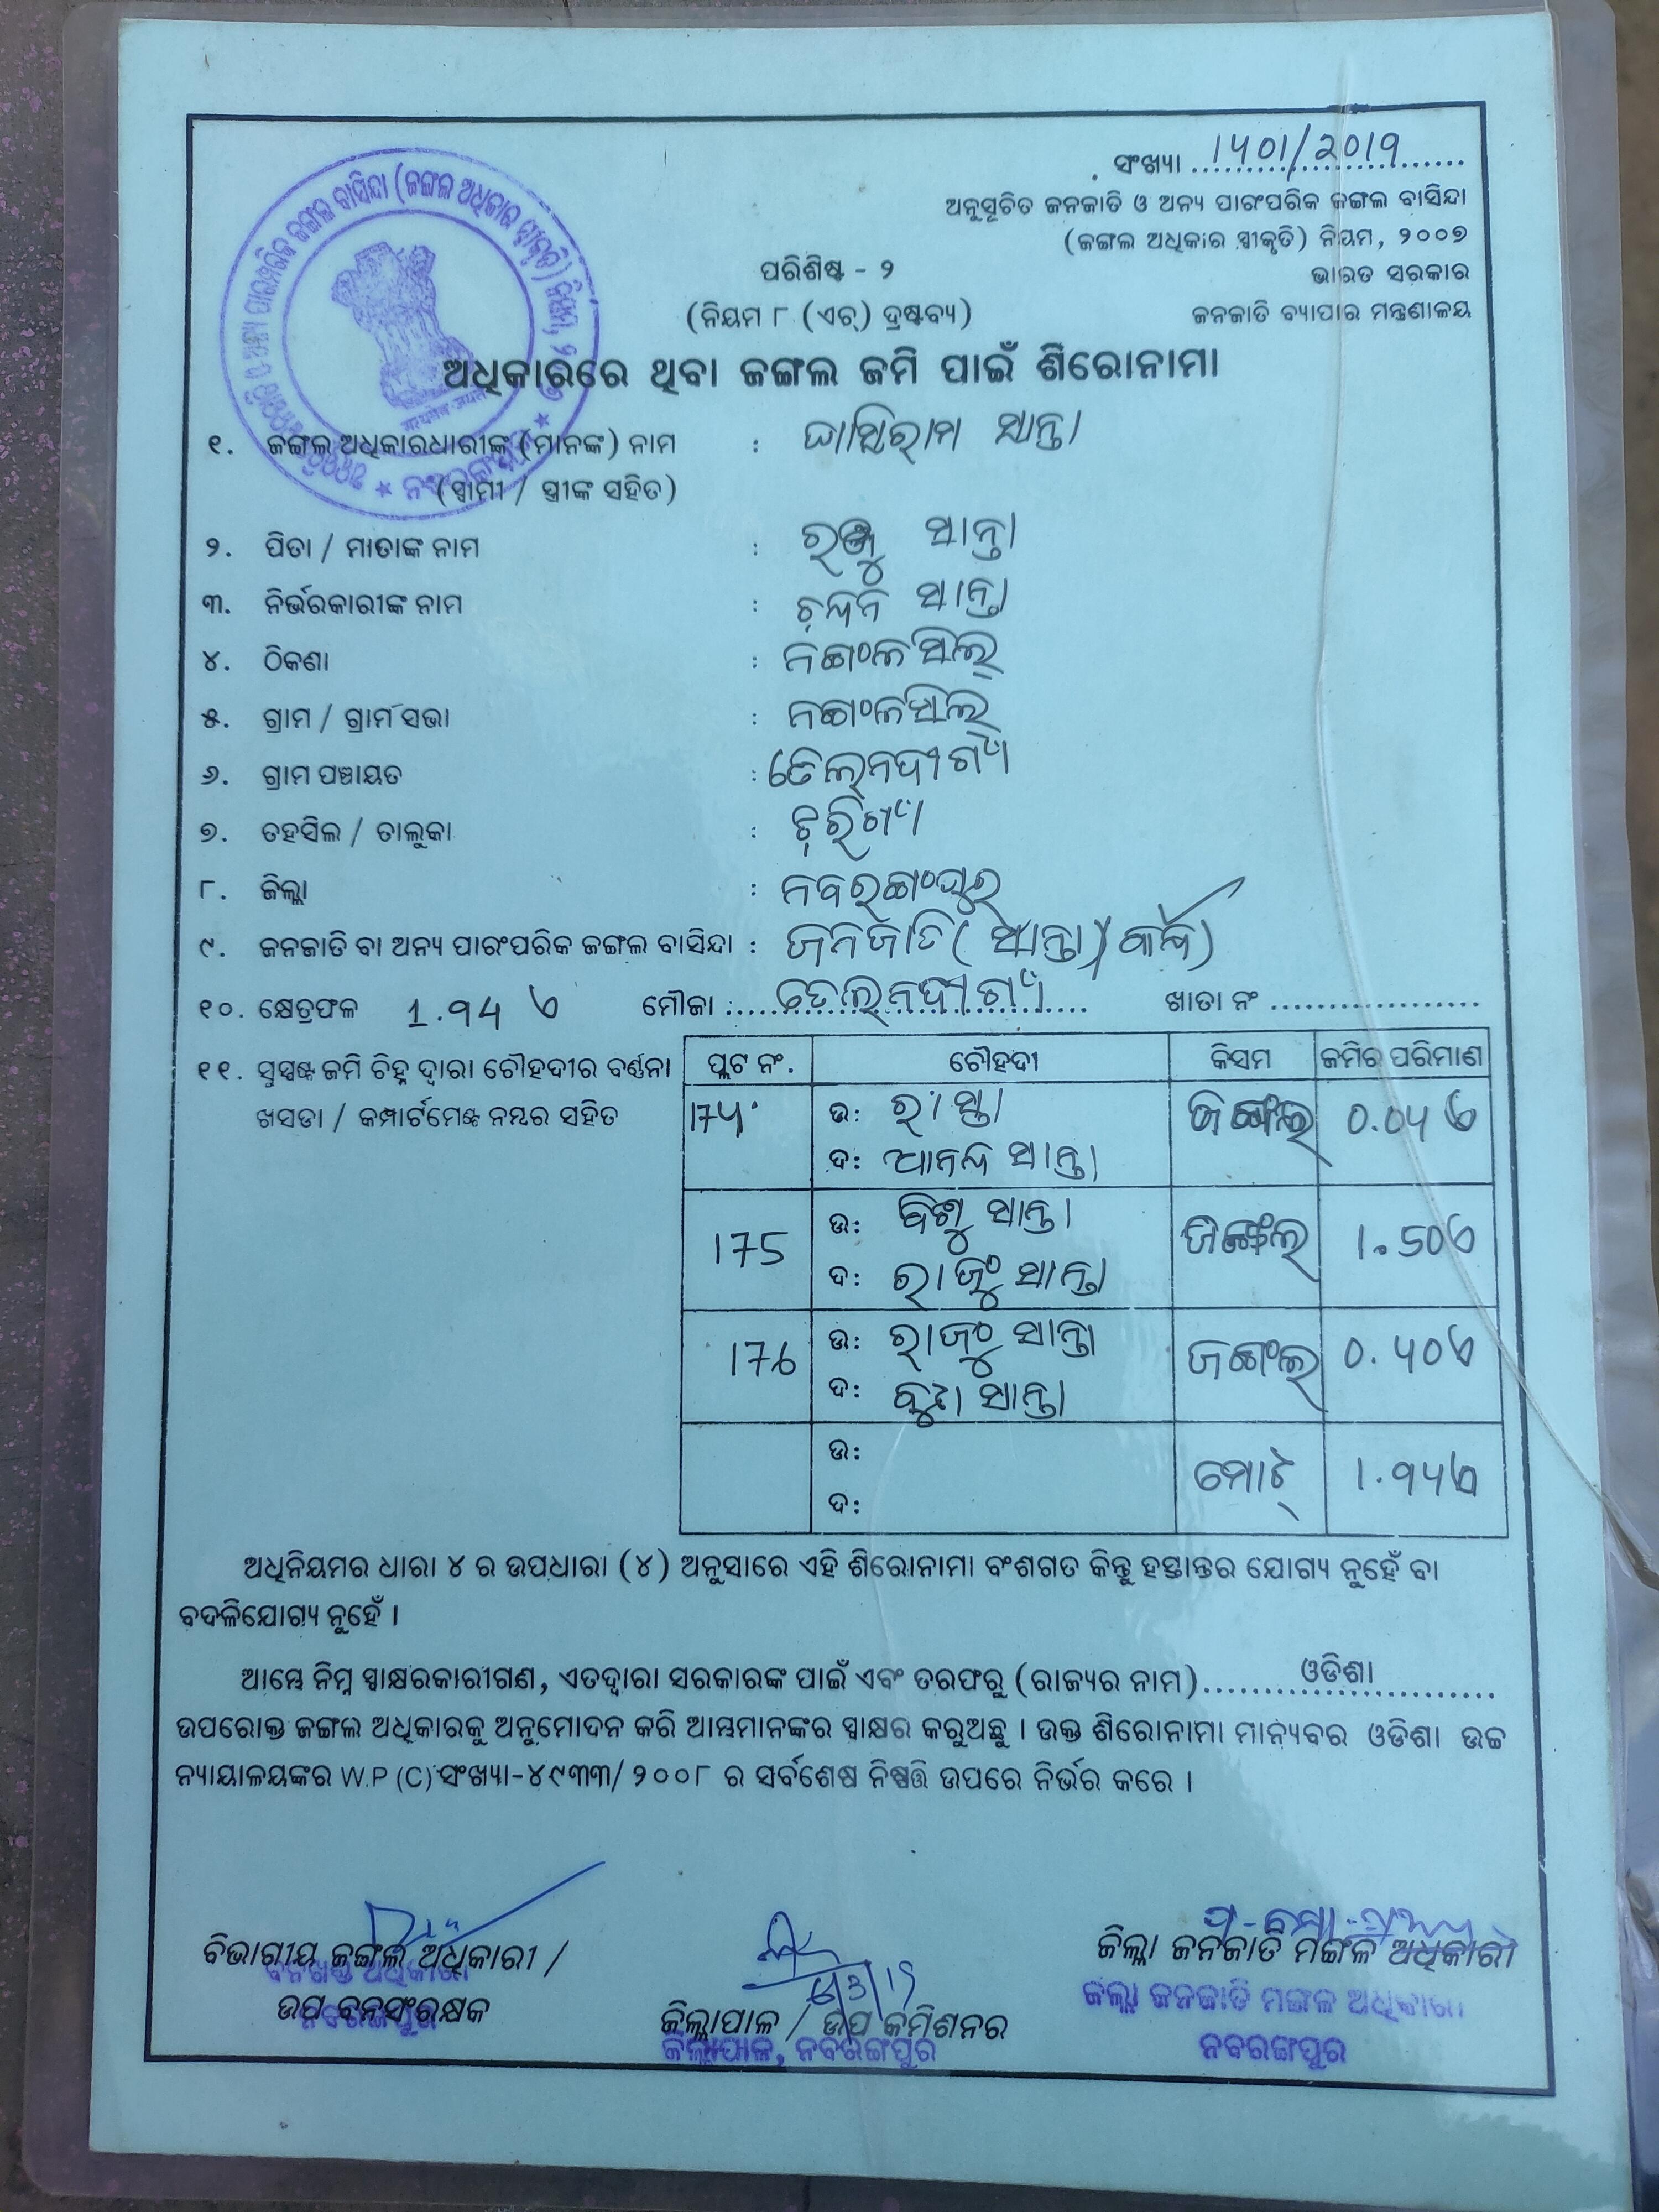 ସଂଖ୍ୟା 1501/2019
ଅନୁସୂଚିତ ଜନଜାତି ଓ ଅନ୍ୟ ପାରଂପରିକ ଜଙ୍ଗଲ ବାସିନ୍ଦା
(ଜଙ୍ଗଲ ଅଧିକାର ସ୍ୱୀକୃତି) ନିୟମ, ୨୦୦୭
ପରିଶିଷ୍ଟ - ୨
ଭାରତ ସରକାର
(ନିୟମ ୮ (ଏଚ୍) ଦ୍ରଷ୍ଟବ୍ୟ)
ଜନଜାତି ବ୍ୟାପାର ମନ୍ତ୍ରଣାଳୟ
ଅଧିକାରରେ ଥିବା ଜଙ୍ଗଲ ଜମି ପାଇଁ ଶିରୋନାମା
୧. ଜଙ୍ଗଲ ଅଧିକାରଧାରୀଙ୍କ (ମାନଙ୍କ) ନାମ : ଘାସିରାମ ସାନ୍ତା
(ସ୍ୱାମୀ / ସ୍ତ୍ରୀଙ୍କ ସହିତ)
୨. ପିତା / ମାତାଙ୍କ ନାମ : ସାନ୍ତା
୩. ନିର୍ଭରକାରୀଙ୍କ ନାମ : ସାନ୍ତା
୪. ଠିକଣା :
୫. ଗ୍ରାମ / ଗ୍ରାମ ସଭା :
୬. ଗ୍ରାମ ପଞ୍ଚାୟତ : ତେଲନଦୀଗାଁ
୭. ତହସିଲ / ତାଲୁକା : ଝରିଗାଁ
୮. ଜିଲ୍ଲା : ନବରଙ୍ଗପୁର
୯. ଜନଜାତି ବା ଅନ୍ୟ ପାରଂପରିକ ଜଙ୍ଗଲ ବାସିନ୍ଦା : ଜନଜାତି (ସାନ୍ତା)
୧୦. କ୍ଷେତ୍ରଫଳ ମୌଜା : ତେଲନଦୀଗାଁ ଖାତା ନଂ
୧୧. ସୁସ୍ପଷ୍ଟ ଜମି ଚିହ୍ନ ଦ୍ୱାରା ଚୌହଦୀର ବର୍ଣ୍ଣନା
ଖସଡା / କମ୍ପାର୍ଟମେଣ୍ଟ ନମ୍ବର ସହିତ
ପ୍ଲଟ ନଂ. ଚୌହଦୀ କିସମ ଜମିର ପରିମାଣ
ଉ: ରାସ୍ତା ଜଙ୍ଗଲ
ଦ: ଆନନ୍ଦ ସାନ୍ତା
175 ଉ: ବିଶୁ ସାନ୍ତା ଜଙ୍ଗଲ 1.50ଏ
ଦ: ସାନ୍ତା
176 ଉ: ସାନ୍ତା ଜଙ୍ଗଲ
ଦ: ସାନ୍ତା
ଉ: ମୋଟ୍
ଦ:
ଅଧିନିୟମର ଧାରା ୪ ର ଉପଧାରା (୪) ଅନୁସାରେ ଏହି ଶିରୋନାମା ବଂଶଗତ କିନ୍ତୁ ହସ୍ତାନ୍ତର ଯୋଗ୍ୟ ନୁହେଁ ବା
ବଦଳିଯୋଗ୍ୟ ନୁହେଁ ।
ଆମ୍ଭେ ନିମ୍ନ ସ୍ୱାକ୍ଷରକାରୀଗଣ, ଏତଦ୍ୱାରା ସରକାରଙ୍କ ପାଇଁ ଏବଂ ତରଫରୁ (ରାଜ୍ୟର ନାମ) ଓଡିଶା
ଉପରୋକ୍ତ ଜଙ୍ଗଲ ଅଧିକାରକୁ ଅନୁମୋଦନ କରି ଆମ୍ଭମାନଙ୍କର ସ୍ୱାକ୍ଷର କରୁଅଛୁ । ଉକ୍ତ ଶିରୋନାମା ମାନ୍ୟବର ଓଡିଶା ଉଚ୍ଚ
ନ୍ୟାୟାଳୟଙ୍କର W.P (C) ସଂଖ୍ୟା-୪୯୩୩/୨୦୦୮ ର ସର୍ବଶେଷ ନିଷ୍ପତ୍ତି ଉପରେ ନିର୍ଭର କରେ ।
ବିଭାଗୀୟ ଜଙ୍ଗଲ ଅଧିକାରୀ /
ଉପ ବନସଂରକ୍ଷକ
ଜିଲ୍ଲାପାଳ / ଉପ କମିଶନର
ଜିଲ୍ଲାପାଳ, ନବରଙ୍ଗପୁର
ଜିଲ୍ଲା ଜନଜାତି ମଙ୍ଗଳ ଅଧିକାରୀ
ଜିଲ୍ଲା ଜନଜାତି ମଙ୍ଗଳ ଅଧିକାରୀ
ନବରଙ୍ଗପୁର